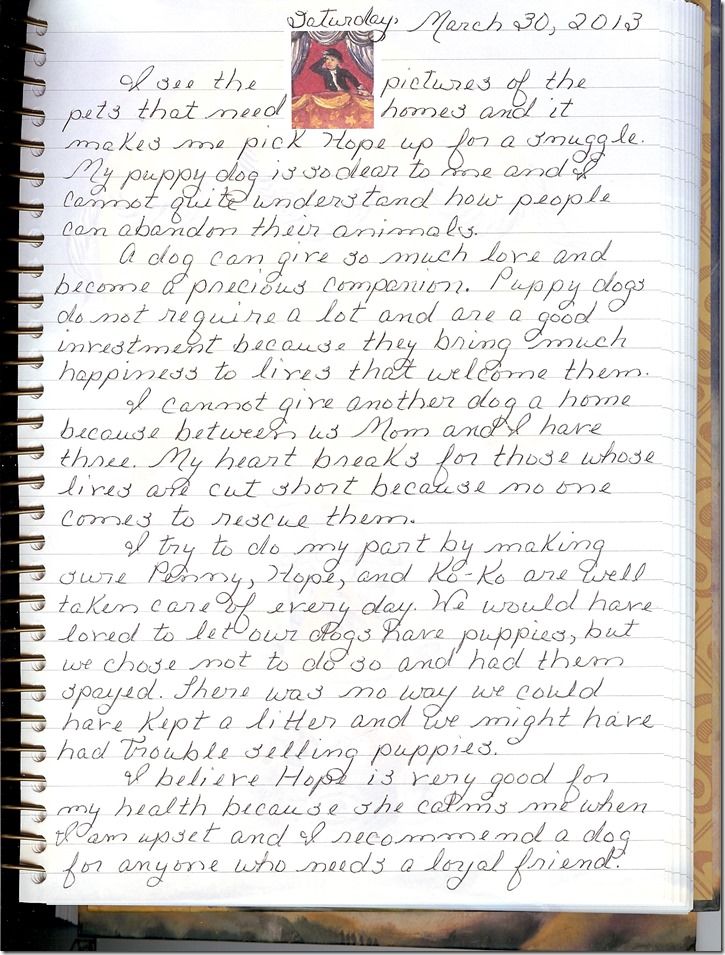 Saturday, March 30, 2013
I see the pictures of the
pets that need homes and it
makes me pick Hope up for a snuggle.
My puppy dog is so dear to me and I
cannot quite understand how people
can abandon their animals.
A dog can give so much love and
become a precious companion. Puppy dogs
do not require a lot and are a good
investment because they bring much
happiness to lives that welcome them.
I cannot give another dog a home
because between us Mom and I have
three. My heart breaks for those whose
lives are cut short because no one
comes to rescue them.
I try to do my part by making
sure Penny, Hope, and Ko-Ko are well
taken care of every day. We would have
loved to let our dogs have puppies, but
we chose not to do so and had them
spayed. There was no way we could
have kept a litter and we might have
had trouble selling puppies.
I believe Hope is very good for
my health because she calms me when
I am upset and I recommend a dog
for anyone who needs a loyal friend.